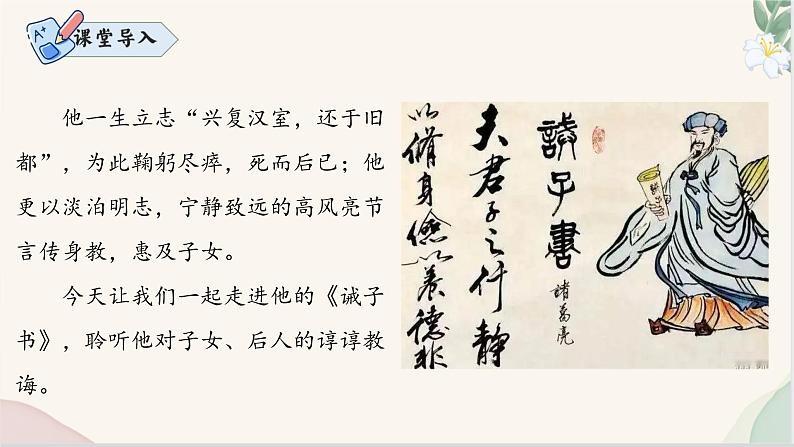 A+
课堂导入
他一生立志“兴复汉室，还于旧
都”，为此鞠躬尽瘁，死而后已；他
更以淡泊明志，宁静致远的高风亮节
言传身教，惠及子女。
今天让我们一起走进他的《诫子
书》，聆听他对子女、后人的谆谆教
诲。
誡子書
諸葛亮
夫君子之行静
以脩身儉以養德非